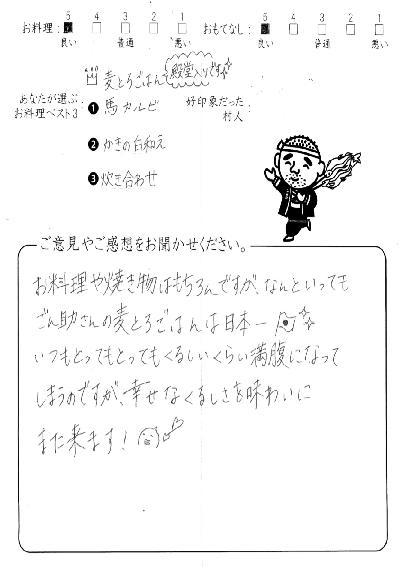 お料理: 5 4 3 2 1 おもてなし: 5 4 3 2 1
良い 普通 悪い 良い 普通 悪い
麦とろごはんで殿堂入りです
あなたが選ぶ
お料理ベスト3
❶ 馬カルビ
好印象だった
村人
❷ かきの白和え
❸ 炊き合わせ
ご意見やご感想をお聞かせください。
お料理や焼き物はもちろんですが、なんといっても
ごん助さんの麦とろごはんは日本一
いつもとってもとってもくるしいくらい満腹になって
しまうのですが、幸せなくるしさを味わいに
また来ます!